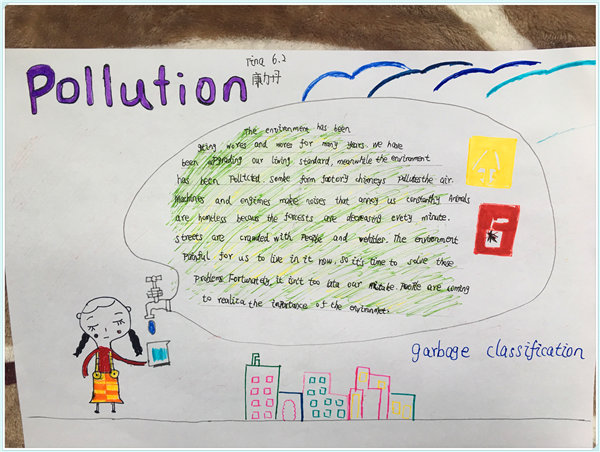 Pollution
rina 6.2
The environment has been
geting wores and wores for many years. We have
been upgrading our living standard, meanwhile the environment
has been Polltced Somke form factory chimeys Pollutes the air.
Machines and engtmes make noises that annoy us constanthy Animals
are homeless becaus the forcests are decreasing evety minute.
streets are crawded with People and vehbles. The environment
Painful for us to live in it now. So it's time to solve these
problems. Fortunately, it isn't too late our mistake. People are coming
to realica the importance of the environmet.
garbage classification